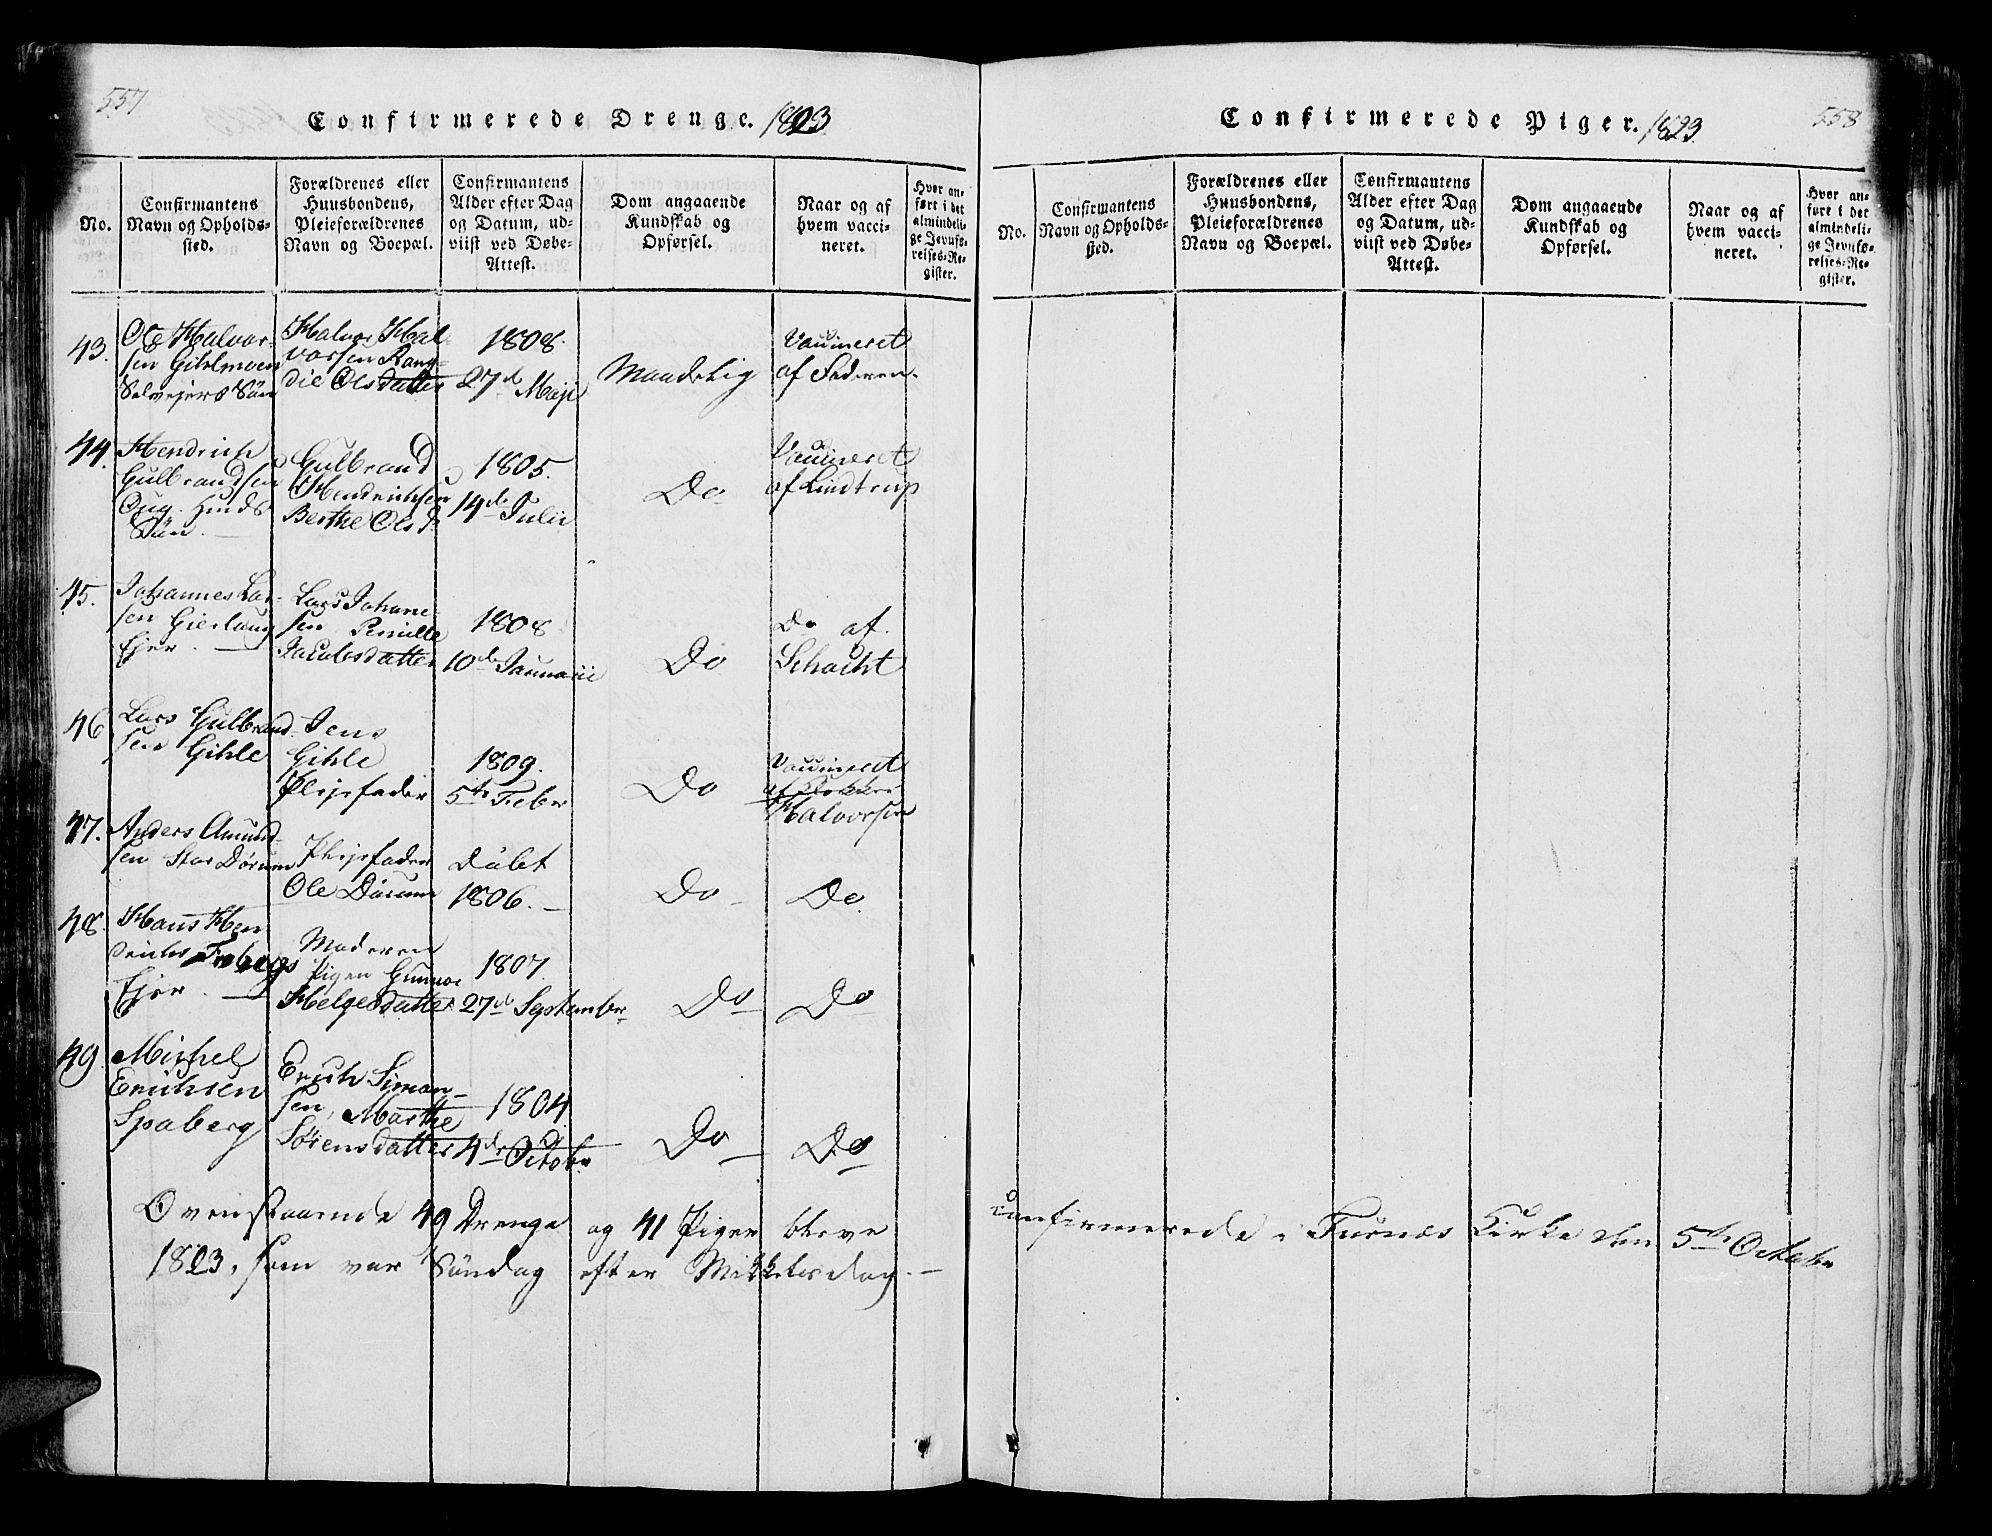 557
Confirmerede Drenge. 1823
No.
Confirmantens
Navn og Opholds-
sted.
Forældrenes eller
Huusbondens,
Pleieforældrenes
Navn og Boepæl.
Confirmantens
Alder efter Dag
og Datum, ud-
viist ved Døbe-
Attest.
Dom angaaende
Kundskab og
Opførsel.
Naar og af
hvem vacci-
neret.
Hvor an-
ført i det
almindeli-
ge Jevnfø-
relses-Re-
gister.
43.
Ole Halvor-
sen Gihlmoen
Selvejers Søn
Halvor Hal-
vorsen Rang-
die Olsdatter
1808.
27de Maji
Maadelig
Vaccineret
af Faderen.
44.
Hendrich
Gulbrandsen
Søn.
Gulbrand
Hendrichsen
Berthe Olsd.
1805.
14de Julii
Do
Vaccineret
af Lindtrup
45.
Johannes Lar-
sen Gierlaug
Ejer.
Lars Johane-
sen Pernille
Jacobsdatter
1808
10de Januarii
Do
Do af
Schacht
46
Lars Gulbrand-
sen Gihle
Jens
Gihle
Plejefader
1809.
5te Febr
Do
Vaccineret
af
Halvorsen
47.
Anders Amund-
sen Stor Dørum
Plejefader
Ole Dørum
Døbt
1806.
Do
Do
48.
Hans Hen-
Ejer.
Moderen
Pigen Gunnor
Helgesdatter
1807.
27de September
Do
Do
49.
Michel
Erichsen
Spaberg
Erich Simon-
sen, Marthe
Sørensdatter
1804.
4de Octobr.
Do
Do
Ovenstaaende 49 Drenge og 41 Piger bleve
1823, som var Søndag efter Mikkelsdag.
558
Confirmerede Piger. 1823.
No.
Confirmantens
Navn og Opholds-
sted.
Forældrenes eller
Huusbondens,
Pleieforældrenes
Navn og Boepæl.
Confirmantens
Alder efter Dag
og Datum, ud-
viist ved Døbe-
Attest.
Dom angaaende
Kundskab og
Opførsel.
Naar og af
hvem vacci-
neret.
Hvor an-
ført i det
almindeli-
ge Jevnfø-
relses-Re-
gister.
confirmerede i Furnæs Kirke den 5te Octobr